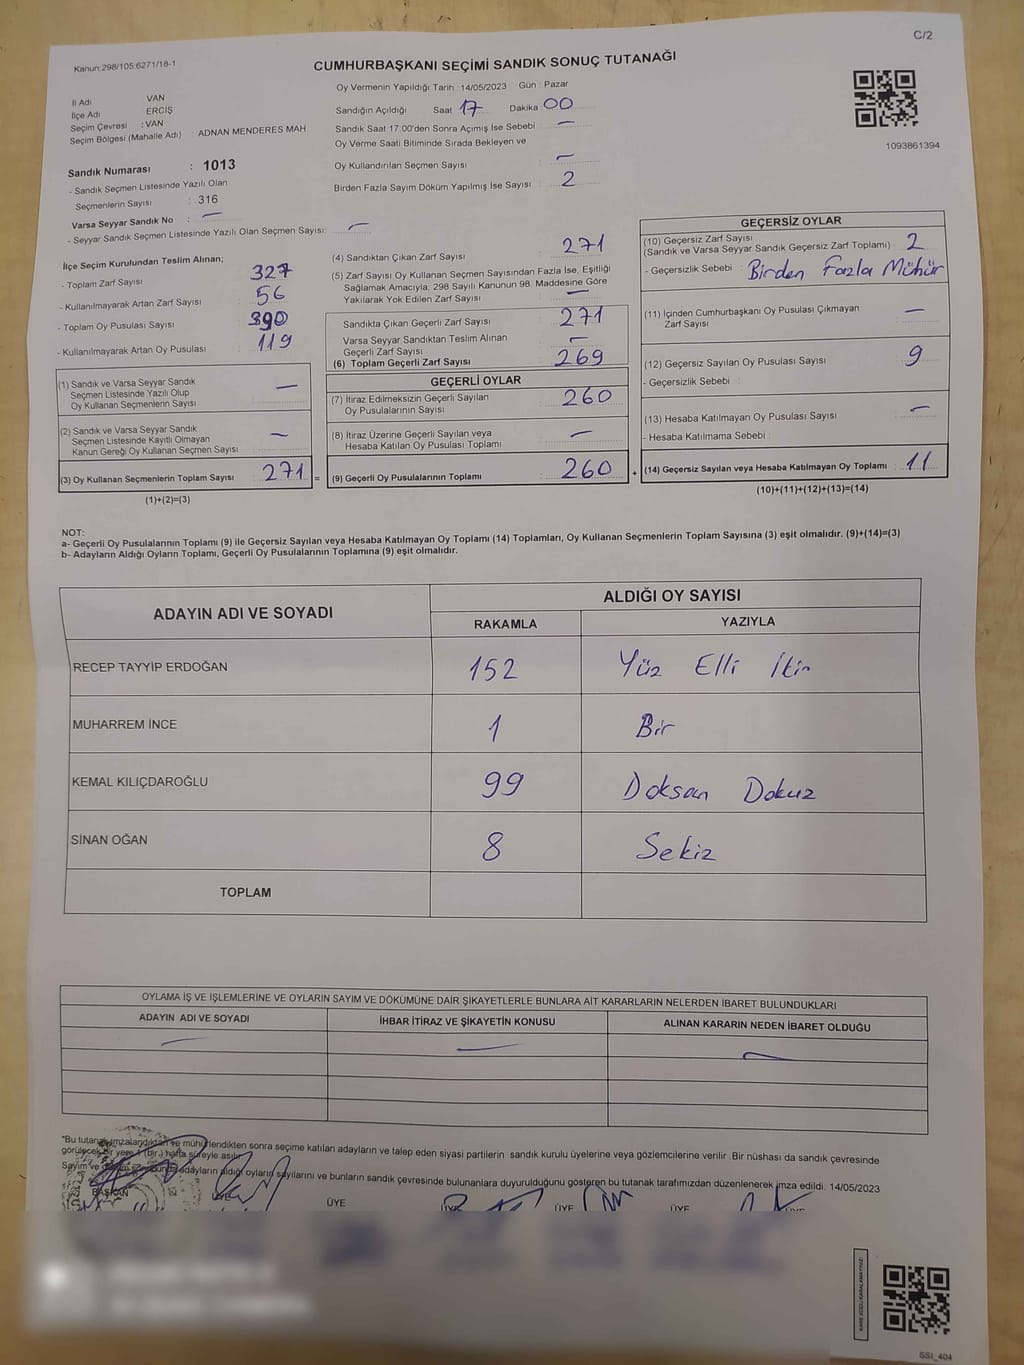 C/2
Kanun:298/105;6271/18-1
CUMHURBAŞKANI SEÇİMİ SANDIK SONUÇ TUTANAĞI
İl Adı VAN
İlçe Adı ERCİŞ
Seçim Çevresi : VAN
Seçim Bölgesi (Mahalle Adı) : ADNAN MENDERES MAH.
Sandık Numarası : 1013
- Sandık Seçmen Listesinde Yazılı Olan
Seçmenlerin Sayısı : 316
Varsa Seyyar Sandık No : —
- Seyyar Sandık Seçmen Listesinde Yazılı Olan Seçmen Sayısı: —
Oy Vermenin Yapıldığı Tarih : 14/05/2023 Gün : Pazar
Sandığın Açıldığı Saat 17 Dakika 00
Sandık Saat 17:00'den Sonra Açımış İse Sebebi : —
Oy Verme Saati Bitiminde Sırada Bekleyen ve
Oy Kullandırılan Seçmen Sayısı : —
Birden Fazla Sayım Döküm Yapılmış İse Sayısı : 2
1093861394
İlçe Seçim Kurulundan Teslim Alınan;
- Toplam Zarf Sayısı : 327
- Kullanılmayarak Artan Zarf Sayısı : 56
- Toplam Oy Pusulası Sayısı : 390
- Kullanılmayarak Artan Oy Pusulası : 119
(1) Sandık ve Varsa Seyyar Sandık
Seçmen Listesinde Yazılı Olup
Oy Kullanan Seçmenlerin Sayısı : —
(2) Sandık ve Varsa Seyyar Sandık
Seçmen Listesinde Kayıtlı Olmayan
Kanun Gereği Oy Kullanan Seçmen Sayısı : —
(3) Oy Kullanan Seçmenlerin Toplam Sayısı : 271 =
(1)+(2)=(3)
(4) Sandıktan Çıkan Zarf Sayısı : 271
(5) Zarf Sayısı Oy Kullanan Seçmen Sayısından Fazla İse, Eşitliği
Sağlamak Amacıyla, 298 Sayılı Kanunun 98. Maddesine Göre
Yakılarak Yok Edilen Zarf Sayısı : —
Sandıkta Çıkan Geçerli Zarf Sayısı : 271
Varsa Seyyar Sandıktan Teslim Alınan
Geçerli Zarf Sayısı : —
(6) Toplam Geçerli Zarf Sayısı : 269
GEÇERLİ OYLAR
(7) İtiraz Edilmeksizin Geçerli Sayılan
Oy Pusulalarının Sayısı : 260
(8) İtiraz Üzerine Geçerli Sayılan veya
Hesaba Katılan Oy Pusulası Toplamı : —
(9) Geçerli Oy Pusulalarının Toplamı : 260 +
GEÇERSİZ OYLAR
(10) Geçersiz Zarf Sayısı
(Sandık ve Varsa Seyyar Sandık Geçersiz Zarf Toplamı) : 2
- Geçersizlik Sebebi : Birden Fazla Mühür
(11) İçinden Cumhurbaşkanı Oy Pusulası Çıkmayan
Zarf Sayısı : —
(12) Geçersiz Sayılan Oy Pusulası Sayısı : 9
- Geçersizlik Sebebi :
(13) Hesaba Katılmayan Oy Pusulası Sayısı : —
- Hesaba Katılmama Sebebi :
(14) Geçersiz Sayılan veya Hesaba Katılmayan Oy Toplamı : 11
(10)+(11)+(12)+(13)=(14)
NOT:
a- Geçerli Oy Pusulalarının Toplamı (9) ile Geçersiz Sayılan veya Hesaba Katılmayan Oy Toplamı (14) Toplamları, Oy Kullanan Seçmenlerin Toplam Sayısına (3) eşit olmalıdır. (9)+(14)=(3)
b- Adayların Aldığı Oyların Toplamı, Geçerli Oy Pusulalarının Toplamına (9) eşit olmalıdır.
ADAYIN ADI VE SOYADI ALDIĞI OY SAYISI
RAKAMLA YAZIYLA
RECEP TAYYİP ERDOĞAN 152 Yüz Elli İki
MUHARREM İNCE 1 Bir
KEMAL KILIÇDAROĞLU 99 Doksan Dokuz
SİNAN OĞAN 8 Sekiz
TOPLAM
OYLAMA İŞ VE İŞLEMLERİNE VE OYLARIN SAYIM VE DÖKÜMÜNE DAİR ŞİKAYETLERLE BUNLARA AİT KARARLARIN NELERDEN İBARET BULUNDUKLARI
ADAYIN ADI VE SOYADI İHBAR İTİRAZ VE ŞİKAYETİN KONUSU ALINAN KARARIN NEDEN İBARET OLDUĞU
— — —
"Bu tutanak imzalandıktan ve mühürlendikten sonra seçime katılan adayların ve talep eden siyasi partilerin sandık kurulu üyelerine veya gözlemcilerine verilir. Bir nüshası da sandık çevresinde
görülecek bir yere 1 (bir) hafta süreyle asılır.
Sayım ve adayların aldığı oyların sayılarını ve bunların sandık çevresinde bulunanlara duyurulduğunu gösteren bu tutanak tarafımızdan düzenlenerek imza edildi. 14/05/2023
BAŞKAN ÜYE ÜYE ÜYE ÜYE ÜYE ÜYE
KARE KODU KARALAMAYINIZ!
SSI_404